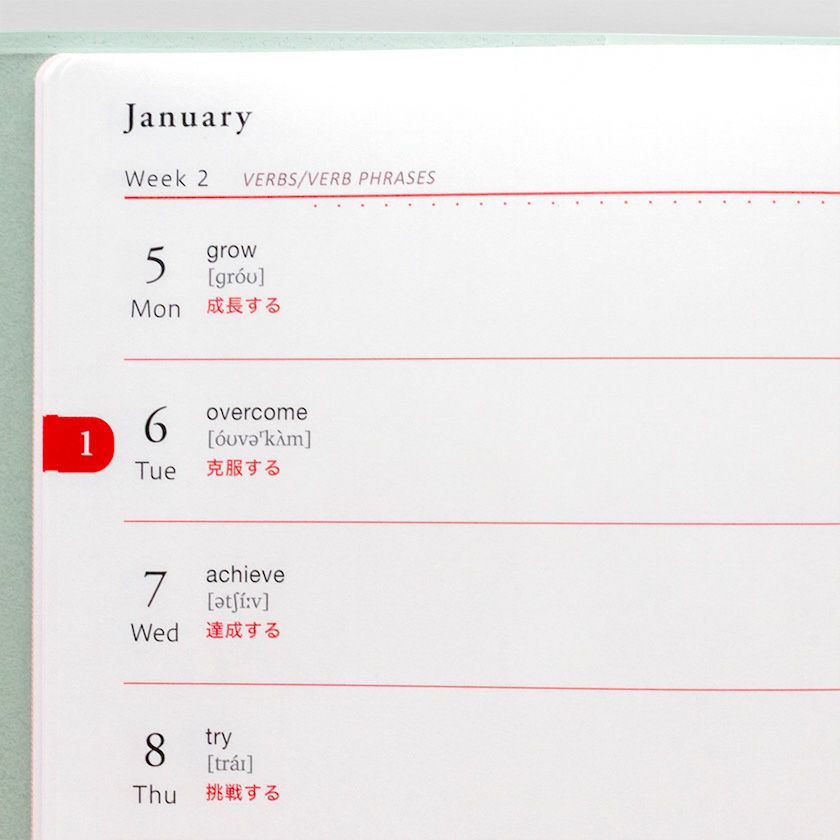 January
Week 2 VERBS/VERB PHRASES
5 grow
[ɡróʊ]
Mon 成長する
6 overcome
[óʊvəʳkʌ̀m]
1
Tue 克服する
7 achieve
[ətʃíːv]
Wed 達成する
8 try
[tráɪ]
Thu 挑戦する